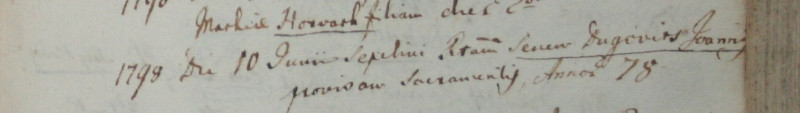 Mathiae Horvath filiam die 2
1798 Die 10 Junii Sepelivi Senem Dugovits Joannem
provisum Sacramentis, Annor 78